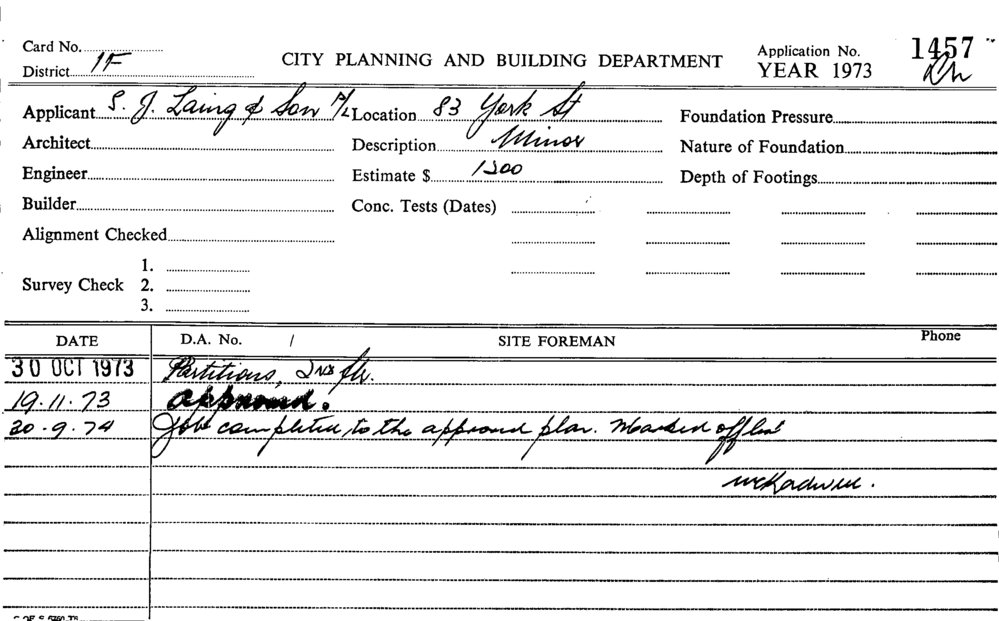 Card No.
District 1F
CITY PLANNING AND BUILDING DEPARTMENT
Application No. 1457
YEAR 1973
Applicant S. J. Laing & Son P/L
Location 83 York St
Foundation Pressure
Architect
Description Minor
Nature of Foundation
Engineer
Estimate $ 1200
Depth of Footings
Builder
Conc. Tests (Dates)
Alignment Checked
Survey Check
1.
2.
3.
DATE D.A. No. / SITE FOREMAN Phone
30 OCT 1973 Partitions, 2nd flr.
19.11.73 approved.
30.9.74 Job completed to the approved plan. Marked off list